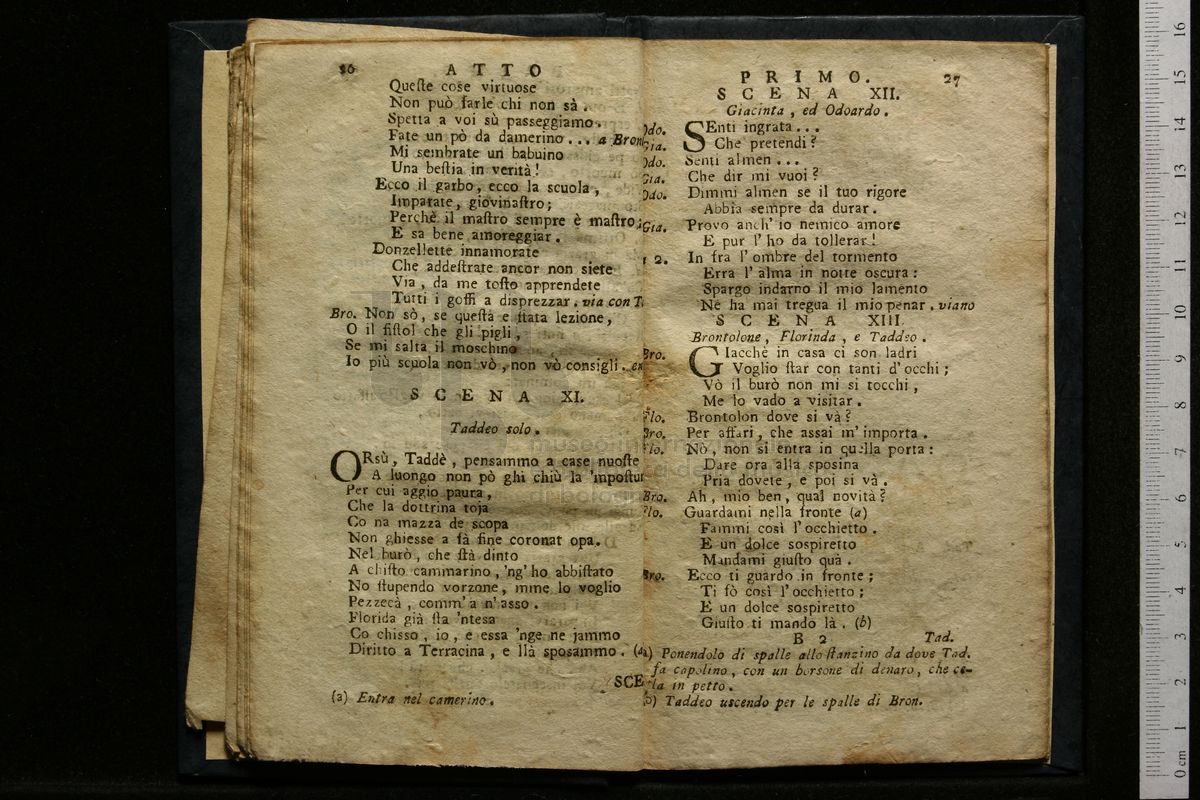 26 ATTO
Queſte cose virtuose
Non può farle chi non sà.
Spetta a voi sù passeggiamo.
Fate un pò da damerino... a Bron
Mi sembrate un babuino
Una beſtia in verità!
Ecco il garbo, ecco la scuola,
Imparate, giovinaſtro;
Perchè il maſtro sempre è maſtro;
E sa bene amoreggiar.
Donzellette innamorate
Che addeſtrate ancor non siete
Via, da me toſto apprendete
Tutti i goffi a disprezzar. via con T.
Bro. Non sò, se queſta e ſtata lezione,
O il fiſtol che gli pigli,
Se mi salta il moschino
Io più scuola non vò, non vò consigli. ex
SCENA XI.
Taddeo solo.
ORsù, Taddè, pensammo a case nuoſte
A luongo non pò ghi chiù la 'mpoſtur
Per cui aggio paura,
Che la dottrina toja
Co na mazza de scopa
Non ghiesse a fà fine coronat opa.
Nel burò, che ſtà dinto
A chiſto cammarino, 'ng' ho abbiſtato
No ſtupendo vorzone, mme lo voglio
Pezzecà, comm' a n' asso.
Florida già ſta 'ntesa
Co chisso, io, e essa 'nge ne jammo
Diritto a Terracina, e llà sposammo. (a)
SCE-
(a) Entra nel camerino.
PRIMO. 27
SCENA XII.
Giacinta, ed Odoardo.
Odo. SEnti ingrata...
Gia. Che pretendi?
Odo. Senti almen...
Gia. Che dir mi vuoi?
Odo. Dimmi almen se il tuo rigore
Abbia sempre da durar.
Gia. Provo anch' io nemico amore
E pur l' ho da tollerar!
2. In fra l' ombre del tormento
Erra l' alma in notte oscura:
Spargo indarno il mio lamento
Nè ha mai tregua il mio penar. viano
SCENA XIII.
Brontolone, Florinda, e Taddeo.
Bro. GIacchè in casa ci son ladri
Voglio ſtar con tanti d' occhi;
Vò il burò non mi si tocchi,
Me lo vado a visitar.
Flo. Brontolon dove si và?
Bro. Per affari, che assai m' importa.
Flo. Nò, non si entra in quella porta:
Dare ora alla sposina
Pria dovete, e poi si và.
Bro. Ah, mio ben, qual novità?
Flo. Guardami nella fronte (a)
Fammi così l' occhietto.
E un dolce sospiretto
Mandami giuſto quà.
Bro. Ecco ti guardo in fronte;
Ti fò così l' occhietto;
E un dolce sospiretto
Giuſto ti mando là. (b)
B 2 Tad.
(a) Ponendolo di spalle allo ſtanzino da dove Tad.
fa capolino, con un borsone di denaro, che ce-
la in petto.
(b) Taddeo uscendo per le spalle di Bron.
museo internazionale
di bologna
0 cm 1 2 3 4 5 6 7 8 9 10 11 12 13 14 15 16